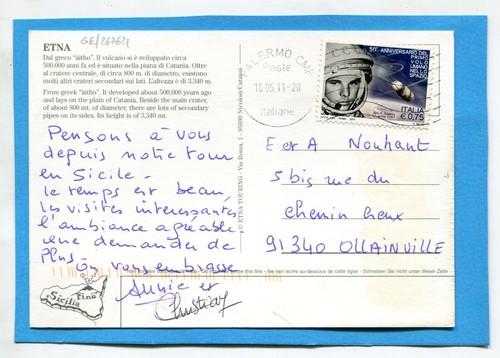 GE/26762
ETNA
Dal greco "àitho". Il vulcano si è sviluppato circa
500.000 anni fa ed è situato nella piana di Catania. Oltre
al cratere centrale, di circa 800 m. di diametro, esistono
molti altri crateri secondari sui lati. L'altezza è di 3.340 m.
From greek "àitho". It developed about 500,000 years ago
and lays on the plain of Catania. Beside the main crater,
of about 800 mt. of diameter, there are lots of secondary
pipes on its sides. Its height is of 3,340 mt.
Pensons à vous
depuis notre tour
en Sicile -
le temps est beau,
les visites intéressantes
l'ambiance agréable
que demander de
plus.
On vous embrasse
Annie et
Christian
Sicilia Etna
© ETNA TOURING - Via Roma, 1 - 95030 Nicolosi/Catania
PALERMO CMP
Poste
10.05.11-20
italiane
50° ANNIVERSARIO DEL
PRIMO
VOLO
UMANO
NELLO
SPAZIO
ITALIA
€ 0,75
E et A Nouhant
5 bis rue du
chemin creux
91340 OLLAINVILLE
this line - Ne rien écrire au-dessous de cette ligne - Schreiben Sie nicht unter dieser Zeile